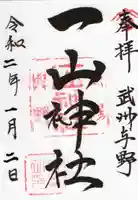 奉拝
武州与野
一山神社
令和二年一月二日